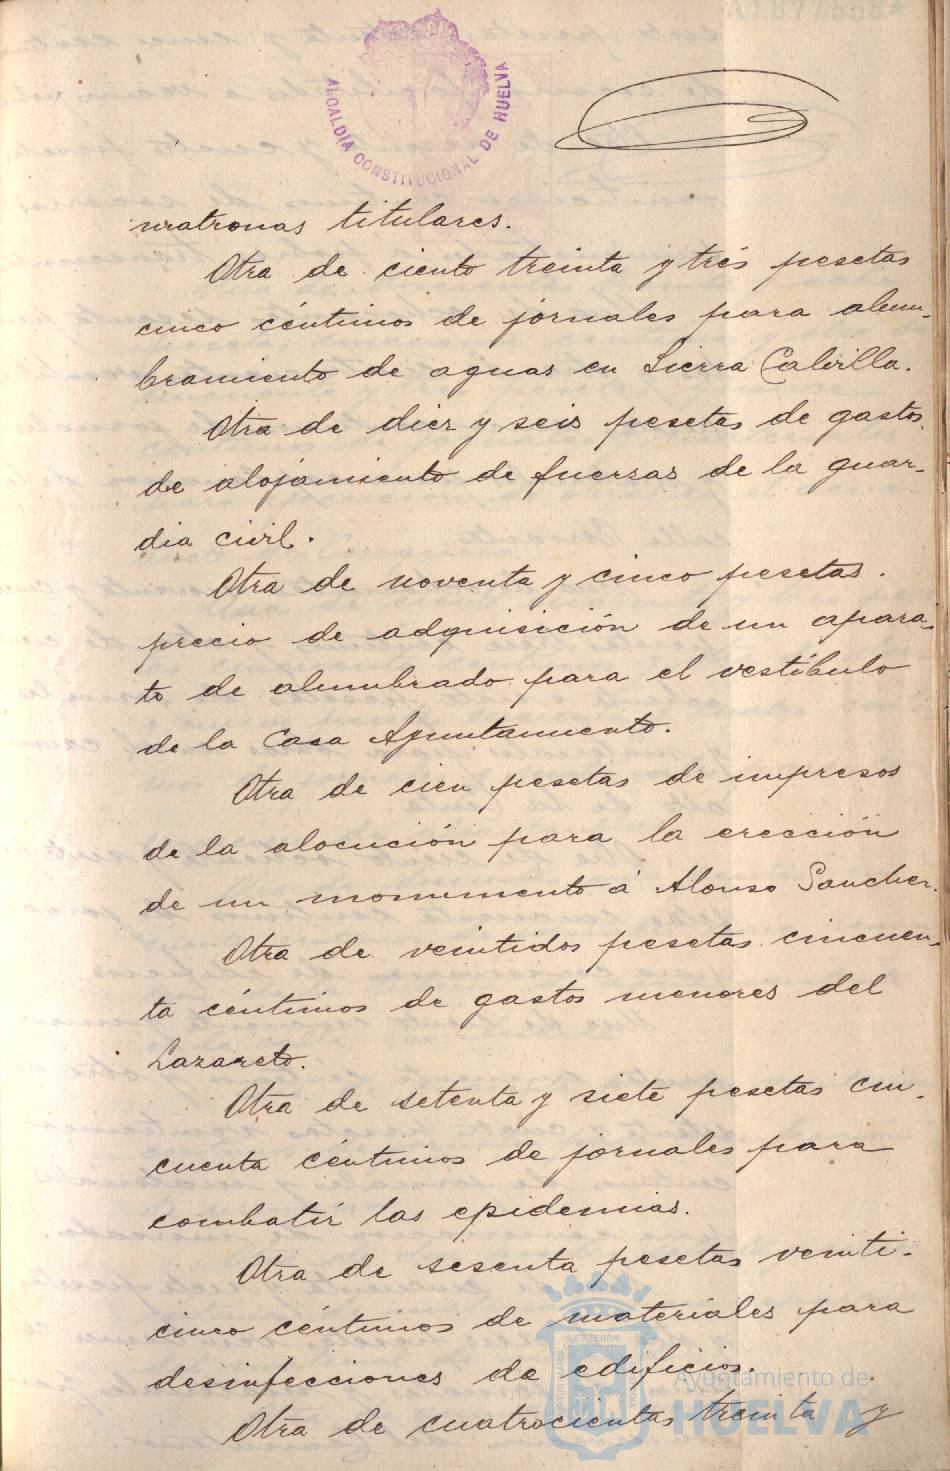 A1877558*
ALCALDIA CONSTITUCIONAL DE HUELVA
matronas titulares.
Otra de ciento treinta y tres pesetas
cinco céntimos de jornales para alum-
bramiento de aguas en Sierra Cabrilla.
Otra de diez y seis pesetas de gastos
de alojamiento de fuerzas de la guar-
dia civil.
Otra de noventa y cinco pesetas.
precio de adquisición de un apara-
to de alumbrado para el vestíbulo
de la Casa Ayuntamiento.
Otra de cien pesetas de impresos
de la alocución para la erección
de un monumento á Alonso Sanchez.
Otra de veintidos pesetas cincuen-
ta céntimos de gastos menores del
Lazareto.
Otra de setenta y siete pesetas cin-
cuenta céntimos de jornales para
combatir las epidemias.
Otra de sesenta pesetas veinti-
cinco céntimos de materiales para
desinfecciones de edificios.
Otra de cuatrocientas treinta y
Ayuntamiento de
HUELVA